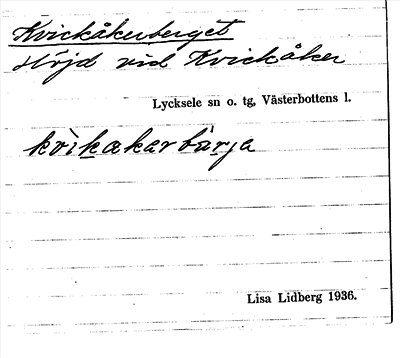 Kvickåkerberget
Höjd vid Kvickåker
Lycksele sn o. tg, Västerbottens l.
kvikakarbärja
Lisa Lidberg 1936.